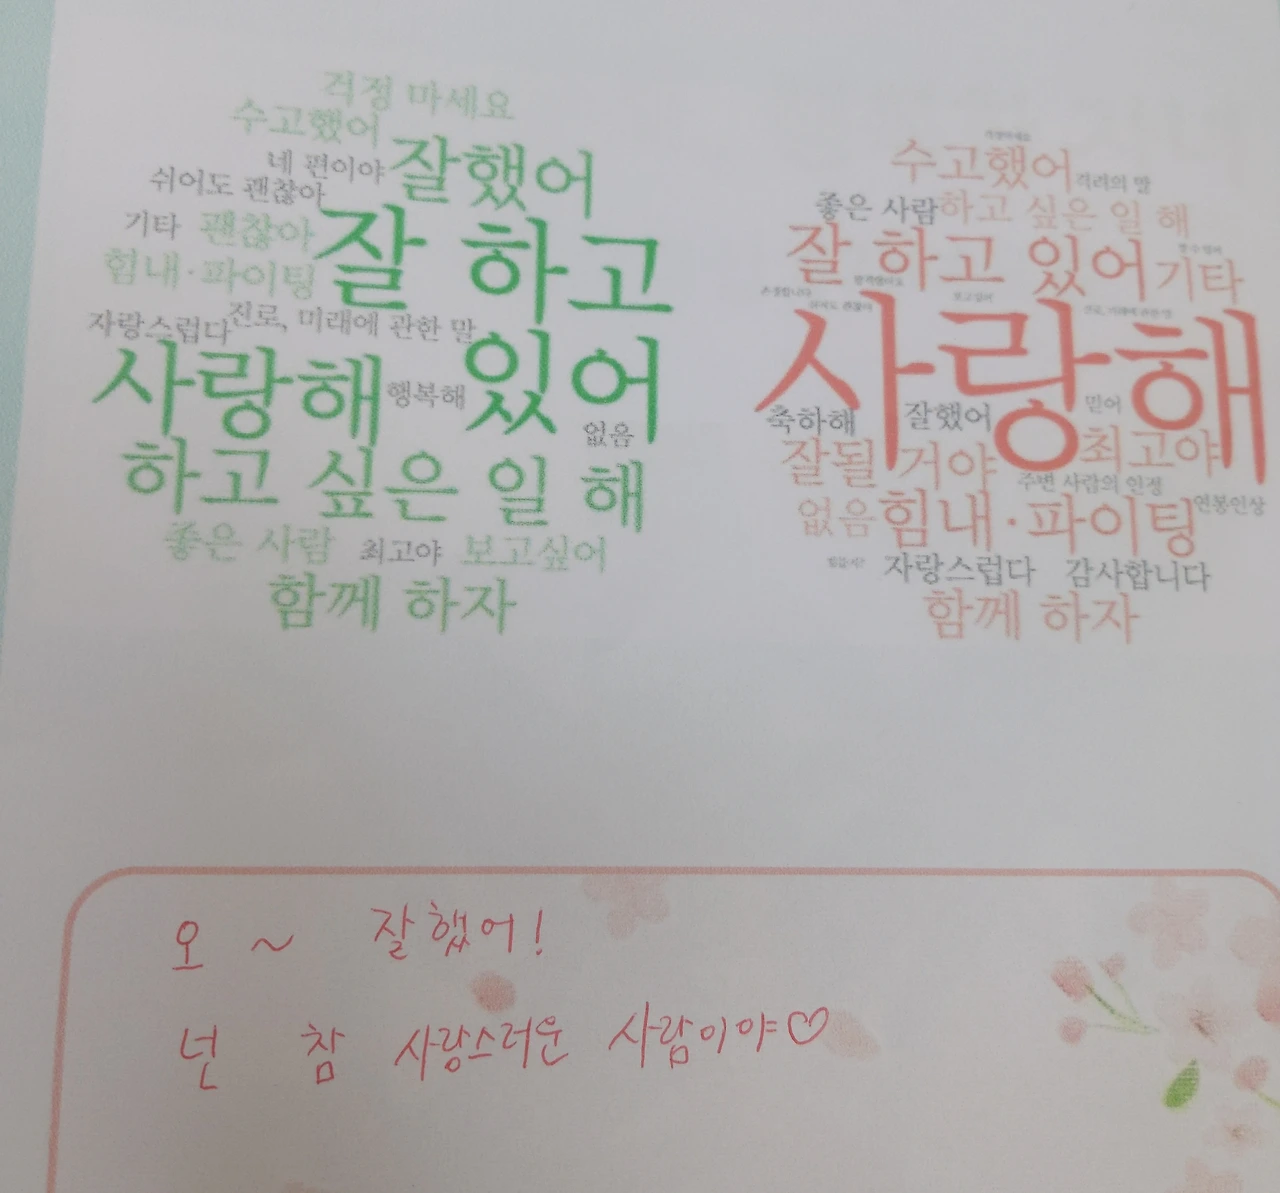 걱정 마세요
수고했어
네 편이야 잘했어
쉬어도 괜찮아
기타 괜찮아 잘 하고
힘내·파이팅
자랑스럽다 진로, 미래에 관한 말
사랑해 행복해 있어
없음
하고 싶은 일 해
좋은 사람 최고야 보고싶어
함께 하자
수고했어 격려의 말
좋은 사람 하고 싶은 일 해
잘 하고 있어 기타
보고싶어
사랑해
축하해 잘했어 믿어
잘될 거야 최고야
주변 사람의 인정
없음 힘내·파이팅 연봉인상
자랑스럽다 감사합니다
함께 하자
오 ~ 잘했어!
넌 참 사랑스러운 사람이야♡